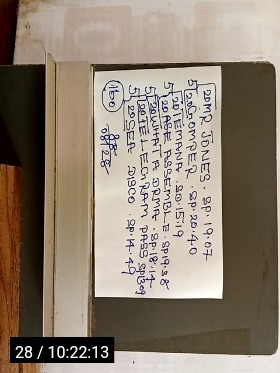 20MR JONES . SP . 19.07
5 20GOMPER . SP. 20.40
5 20TEMANA . SP. 15.19
5 20ASE ASSEMBLE . SP19.38
5 20WHAT A DRMA . SP.18.14
5 20TELEGRAM PASS SP1309
5 29SEA DISCO . SP. 14.49
160
28 / 10:22:13